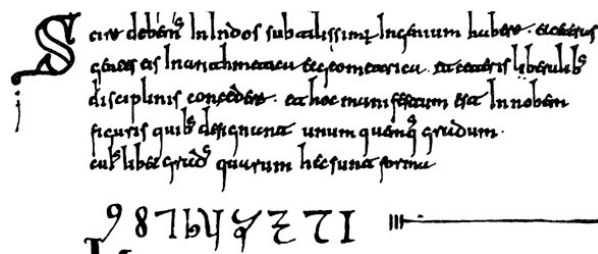 Scire debem&#x27; In Indos subtilissimu Ingenium habere · et ceteras
gentes eis In arithmetica et geometrica · et ceteris liberalib&#x27;
disciplinis concedere · et hoc manifestum est In nobem
figuris quib&#x27; designant unum quemq&#x27; gradum ·
cui&#x27;libet grad&#x27; quarum hec sunt forma
9 8 7 6 5 4 3 2 1